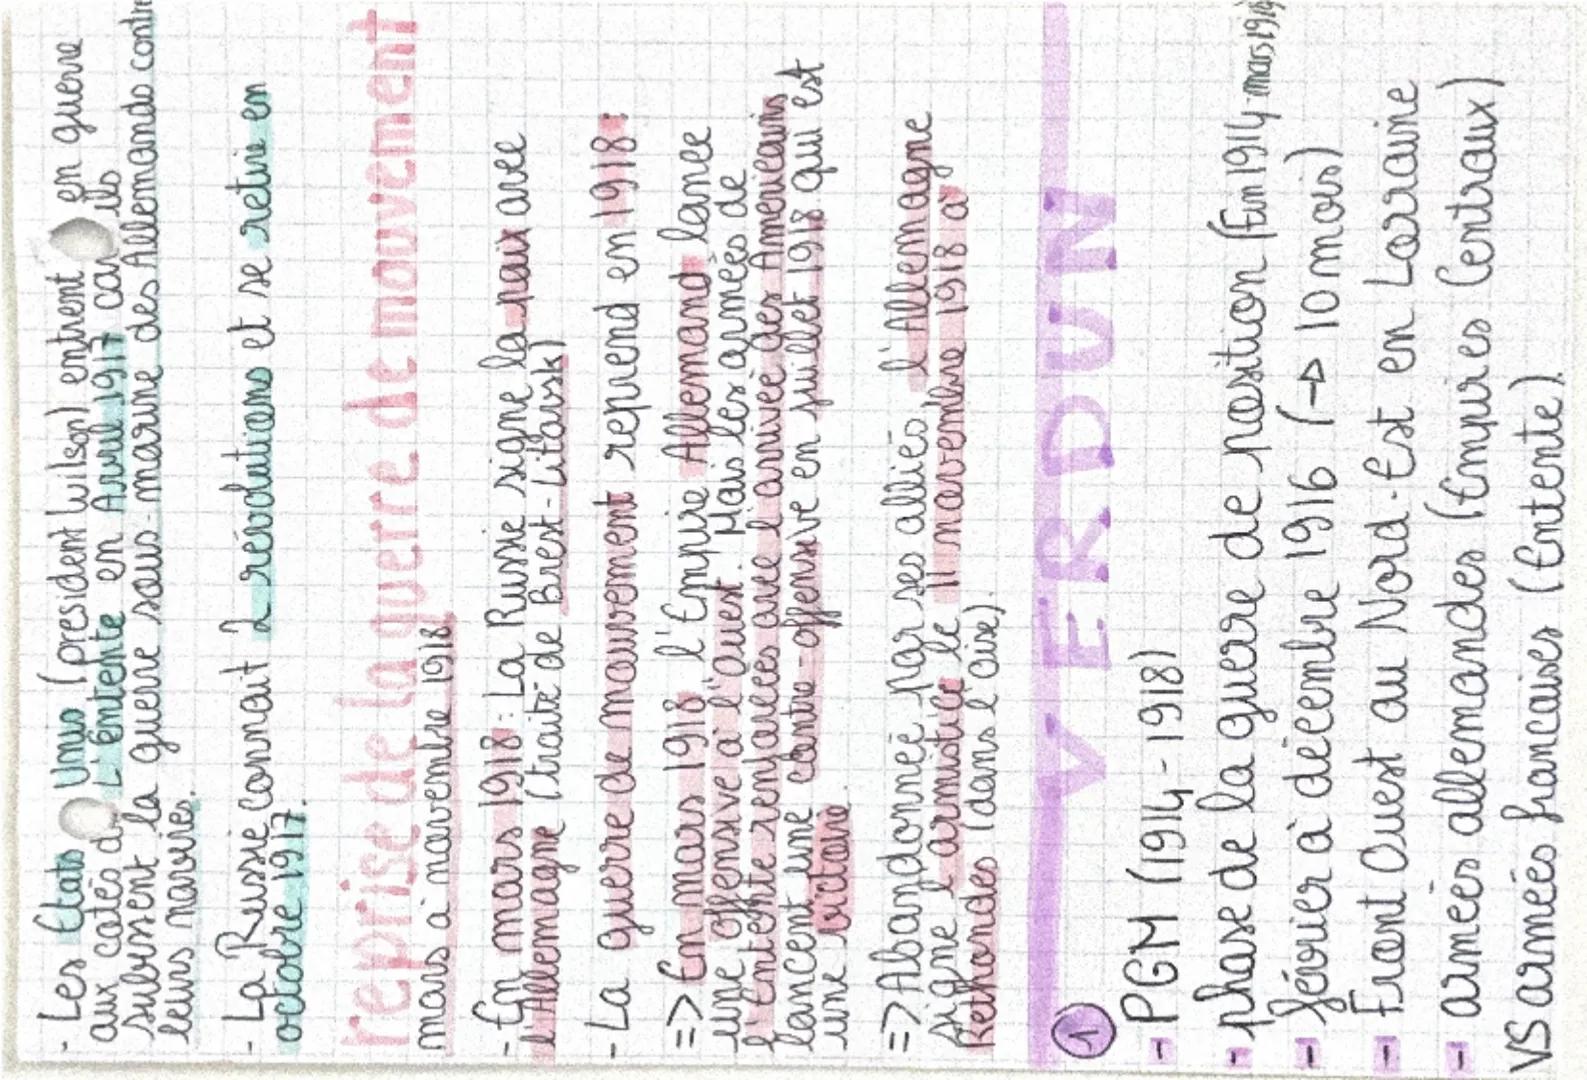 - Les États Unis (president Wilson) entrent en guerre
aux cotés d L'entente en Avril 1917 car ils
subissent la guerre sous-marine des Allemands contre
leurs navire.
- La Russie connait 2 révolutions et se retire en
octobre 1917.
reprise de la guerre de mouvement
mars à novembre 1918
- En mars 1918 : La Russie signe la paix avec
l'Allemagne (traité de Brest-Litovsk)
- La guerre de mouvement reprend en 1918 :
=> En mars 1918 l'Empire Allemand lance
une offensive à l'ouest. Mais les armées de
l'Entente renforcées avec l'arrivée des Americains
lancent une contre-offensive en juillet 1918 qui est
une victoire.
=> Abandonnée par ses alliés l'Allemagne
signe l'armistice le 11 novembre 1918 à
Rethondes (dans l'Oise).
VERDUN
1
- PGM (1914-1918)
- phase de la guerre de position (Fin 1914-mars 1918
- février à décembre 1916 (→ 10 mois)
- Front Ouest au Nord-Est en Lorraine
- armées allemandes (Empires Centraux)
VS armées francaises (Entente).